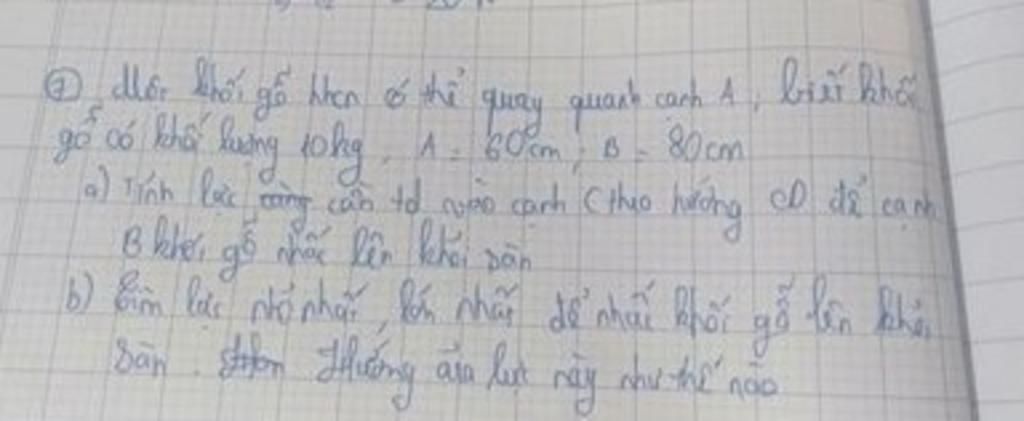 ② Một khối gỗ hhcn có thể quay quanh cạnh A, biết khối
gỗ có khối lượng 10kg, A = 60cm; B = 80cm
a) Tính lực cần td vào cạnh C theo hướng CD để cạnh
B khối gỗ nhấc lên khỏi sàn
b) Tìm lực nhỏ nhất, lớn nhất để nhấc khối gỗ lên khỏi
sàn. Hướng của lực này như thế nào